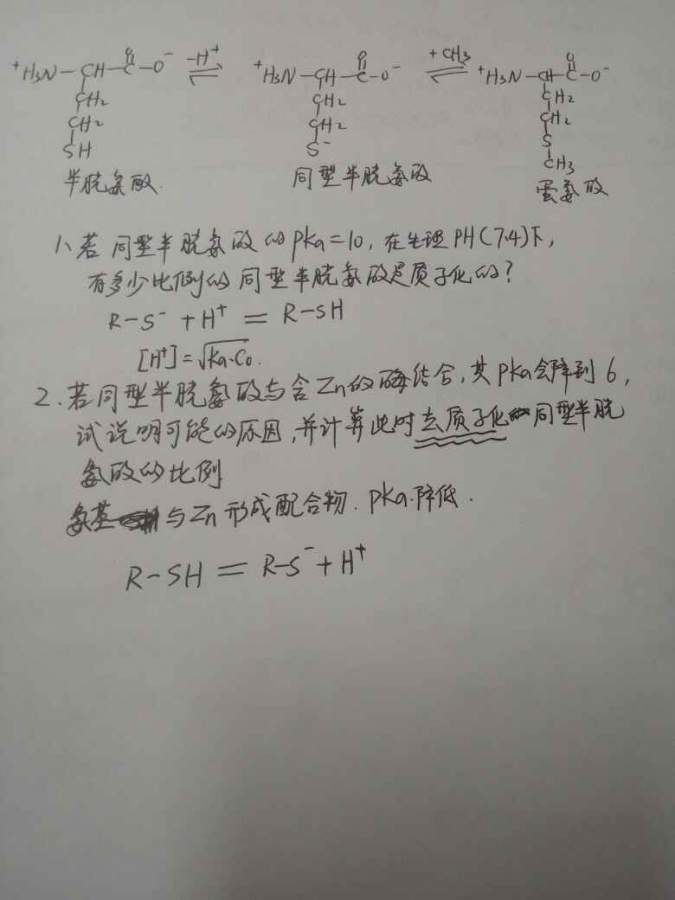 ⁺H₃N—CH—C(=O)—O⁻ ⇌(−H⁺) ⁺H₃N—CH—C(=O)—O⁻ ⇌(+CH₃) ⁺H₃N—CH—C(=O)—O⁻
CH₂ CH₂ CH₂
CH₂ CH₂ CH₂
SH S⁻ S
CH₃
半胱氨酸 同型半胱氨酸 蛋氨酸
1、若同型半胱氨酸的pKa=10,在生理PH(7.4)下,
有多少比例的同型半胱氨酸是质子化的?
R-S⁻ + H⁺ = R-SH
[H⁺]=√Ka·C₀.
2.若同型半胱氨酸与含Zn的酶结合,其pKa会降到6,
试说明可能的原因,并计算此时去质子化同型半胱
氨酸的比例
氨基与Zn形成配合物.pKa降低.
R-SH = R-S⁻ + H⁺